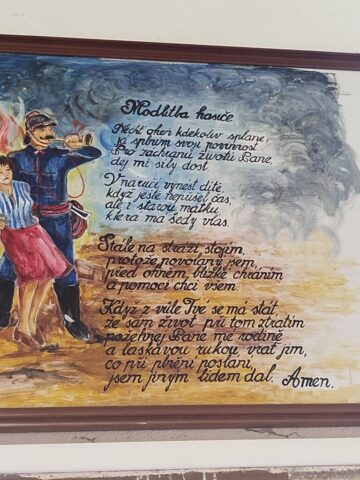 Modlitba hasiče
Nechť oheň kdekoliv splane,
já splním svoji povinnost.
Pro záchranu životů Pane,
dej mi síly dost.
V náruči vynést dítě,
když ještě nepřišel čas,
ale i starou matku,
která má šedý vlas.
Stále na stráži stojím,
protože povolaný jsem,
před ohněm, blízké chráním
a pomoci chci všem.
Když z vůle Tvé se má stát,
že sám život při tom ztratím
požehnej Pane mé rodině
a laskavou rukou, vrať jim,
co při plnění poslání,
jsem jiným lidem dal. Amen.